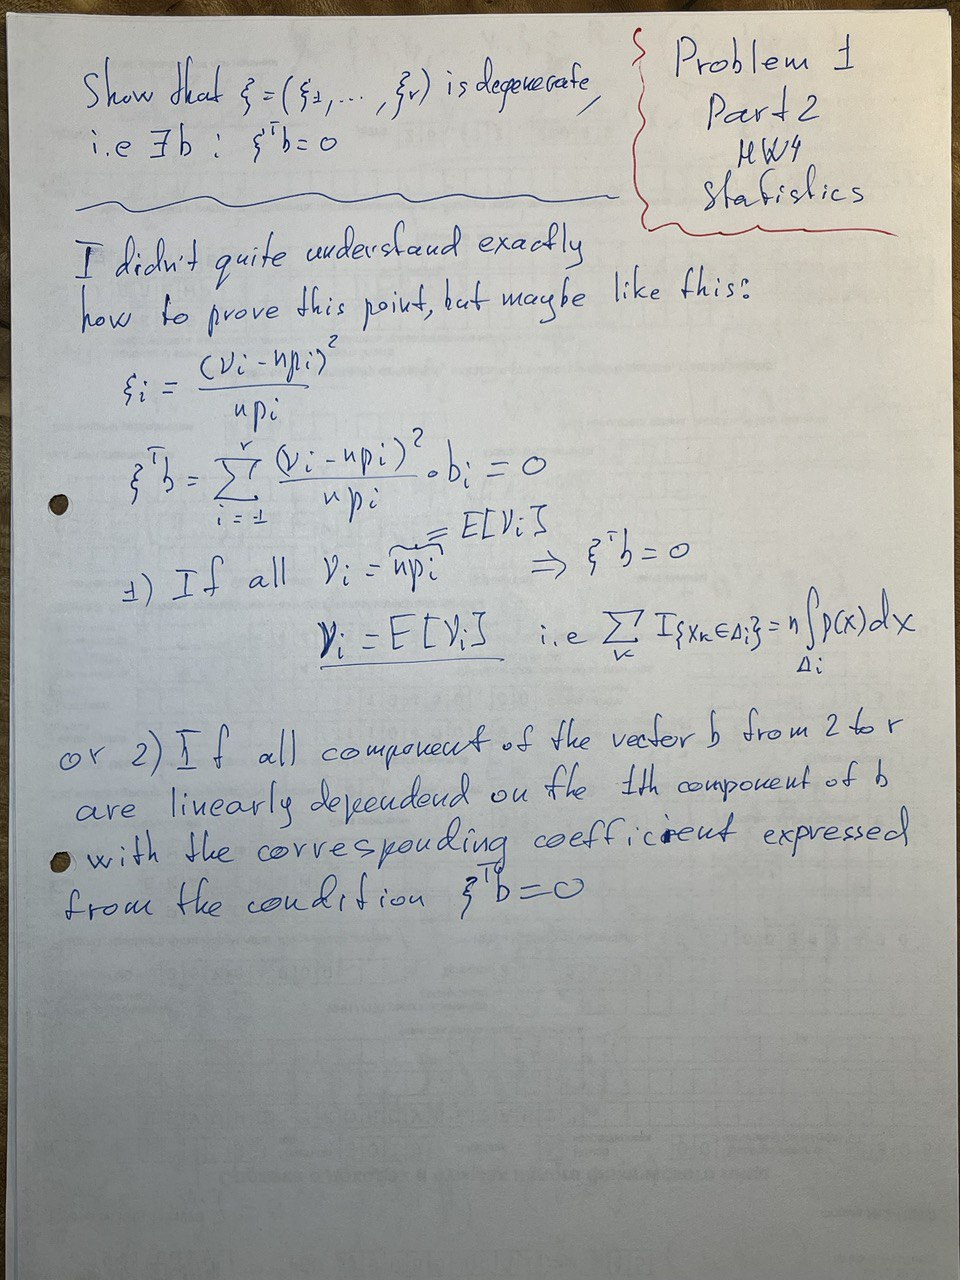 Show that ξ = (ξ1, ... , ξr) is degenerate,
i.e ∃b : ξᵀb = 0
Problem 1
Part 2
HW4
Statistics
I didn't quite understand exactly
how to prove this point, but maybe like this:
ξi = (νi - npi)² / npi
ξᵀb = Σ_{i=1}^{r} (νi - npi)² / npi · bi = 0
1) If all νi = npi = E[νi] ⇒ ξᵀb = 0
νi = E[νi] i.e Σ_k I{Xk ∈ Δi} = n∫_{Δi} p(x)dx
or 2) If all component of the vector b from 2 to r
are linearly dependend on the 1th component of b
with the corresponding coefficient expressed
from the condition ξᵀb = 0